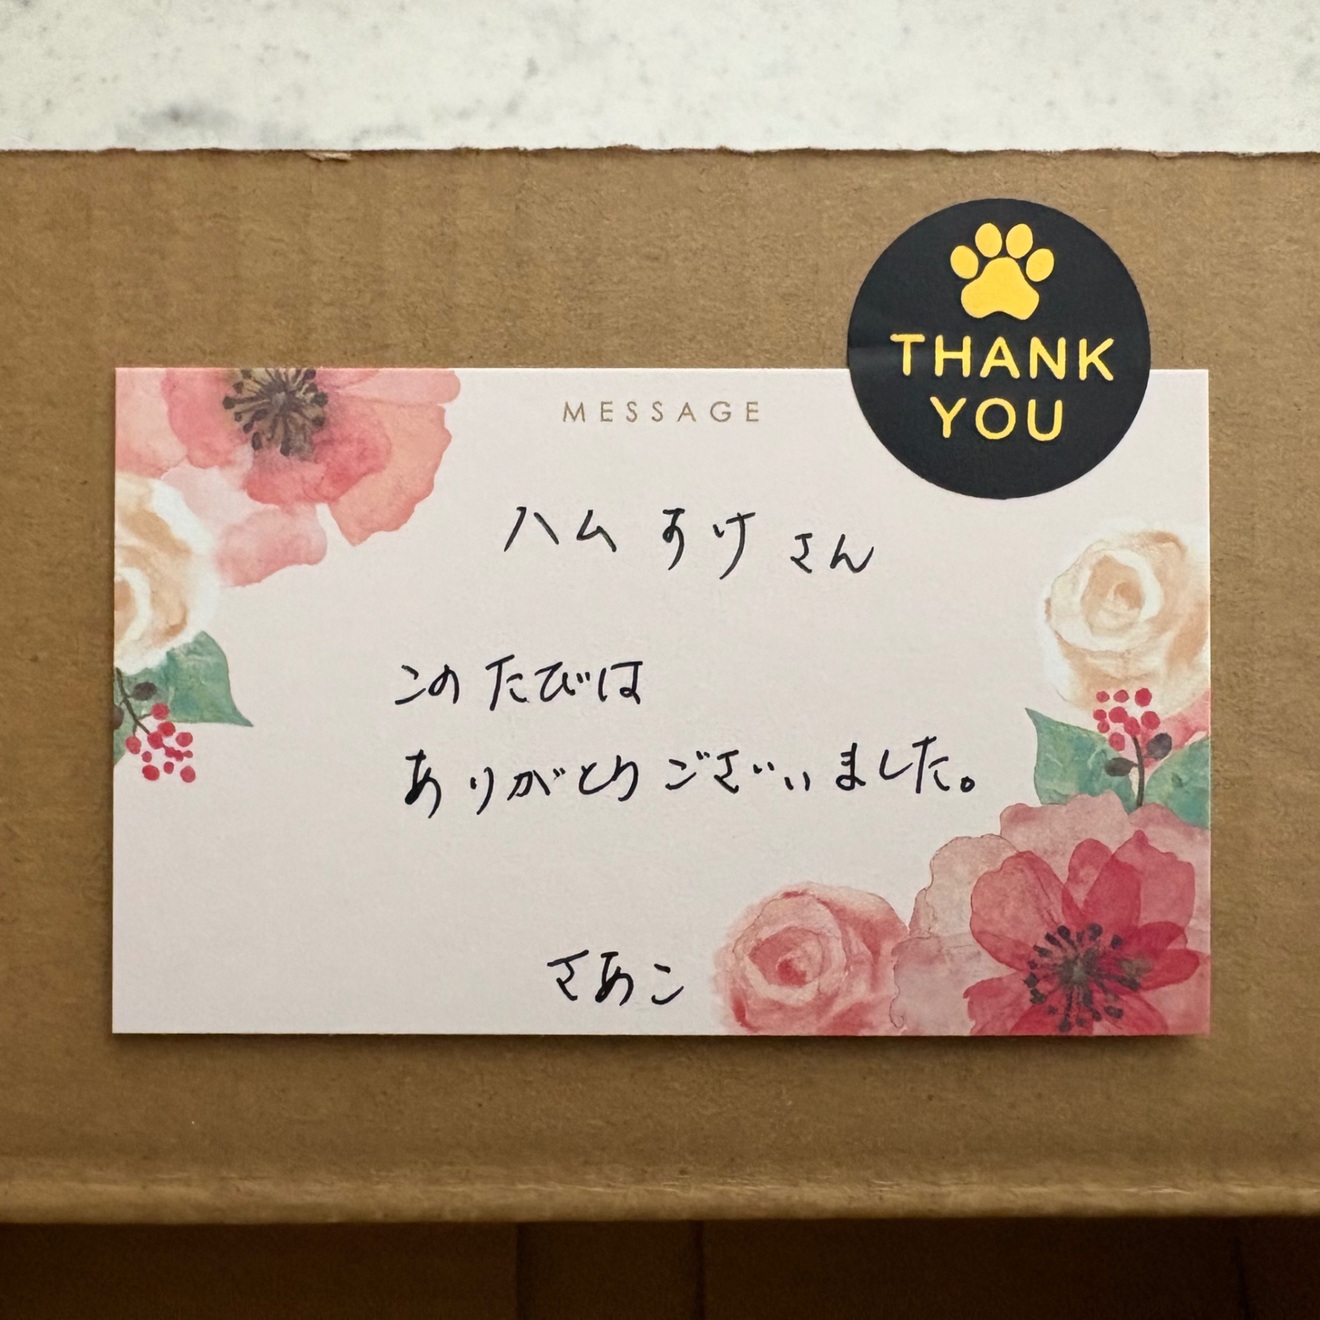 THANK
YOU
MESSAGE
ハムすけさん
このたびは
ありがとうございました。
さあこ